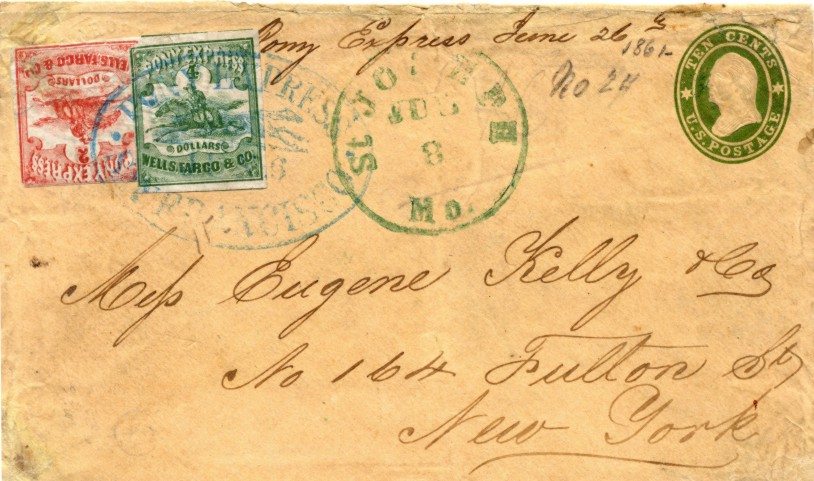 Pony Express June 26th
1861
No 24
WELLS, FARGO & CO.
DOLLARS
2
PONY EXPRESS
PONY EXPRESS
4
DOLLARS
WELLS, FARGO & CO.
PONY EXPRESS
26
SAN FRANCISCO
ST JOSEPH
JUL
8
Mo.
TEN CENTS
U.S. POSTAGE
Mess Eugene Kelly & Co
No 164 Fulton St
New York